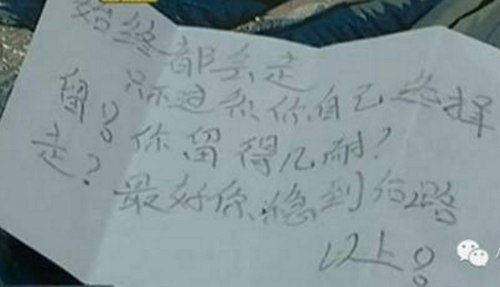 始终都会走
只不过系你自己选择
留!
你留得几耐?
走?
最好你稳到路
以上!